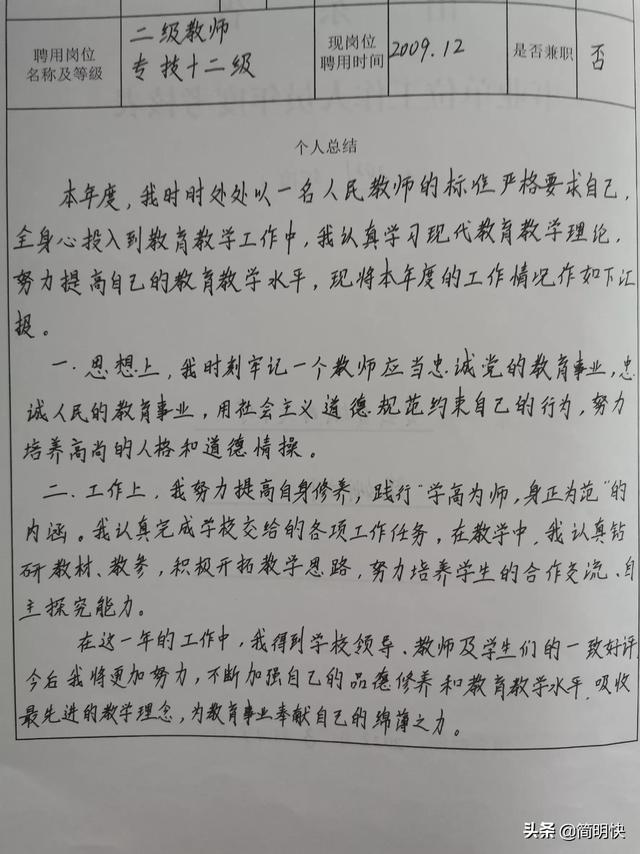 聘用岗位
名称及等级
二级教师
专技十二级
现岗位
聘用时间
2009.12
是否兼职
否
个人总结
本年度,我时时处处以一名人民教师的标准严格要求自己,
全身心投入到教育教学工作中,我认真学习现代教育教学理论,
努力提高自己的教育教学水平,现将本年度的工作情况作如下汇
报。
一.思想上,我时刻牢记一个教师应当忠诚党的教育事业,忠
诚人民的教育事业,用社会主义道德规范约束自己的行为,努力
培养高尚的人格和道德情操。
二.工作上,我努力提高自身修养,践行“学高为师,身正为范”的
内涵。我认真完成学校交给的各项工作任务,在教学中,我认真钻
研教材、教参,积极开拓教学思路,努力培养学生的合作交流、自
主探究能力。
在这一年的工作中,我得到学校领导、教师及学生们的一致好评,
今后我将更加努力,不断加强自己的品德修养和教育教学水平,吸收
最先进的教学理念,为教育事业奉献自己的绵薄之力。
头条 @简明快